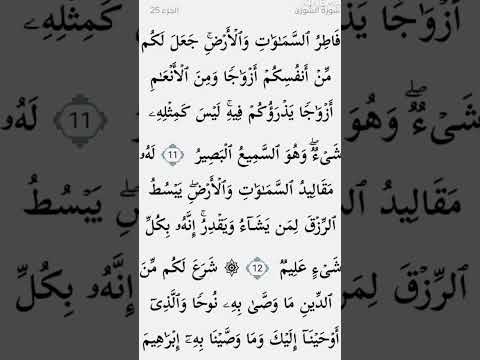 سورة الشورى الجزء 25
فَاطِرُ ٱلسَّمَـٰوَٰتِ وَٱلْأَرْضِ ۚ جَعَلَ لَكُم
مِّنْ أَنفُسِكُمْ أَزْوَٰجًا وَمِنَ ٱلْأَنْعَـٰمِ
أَزْوَٰجًا ۖ يَذْرَؤُكُمْ فِيهِ ۚ لَيْسَ كَمِثْلِهِۦ
شَىْءٌ ۖ وَهُوَ ٱلسَّمِيعُ ٱلْبَصِيرُ 11 لَهُۥ
مَقَالِيدُ ٱلسَّمَـٰوَٰتِ وَٱلْأَرْضِ ۖ يَبْسُطُ
ٱلرِّزْقَ لِمَن يَشَآءُ وَيَقْدِرُ ۚ إِنَّهُۥ بِكُلِّ
شَىْءٍ عَلِيمٌ 12 ۞ شَرَعَ لَكُم مِّنَ
ٱلدِّينِ مَا وَصَّىٰ بِهِۦ نُوحًا وَٱلَّذِىٓ
أَوْحَيْنَآ إِلَيْكَ وَمَا وَصَّيْنَا بِهِۦٓ إِبْرَٰهِيمَ